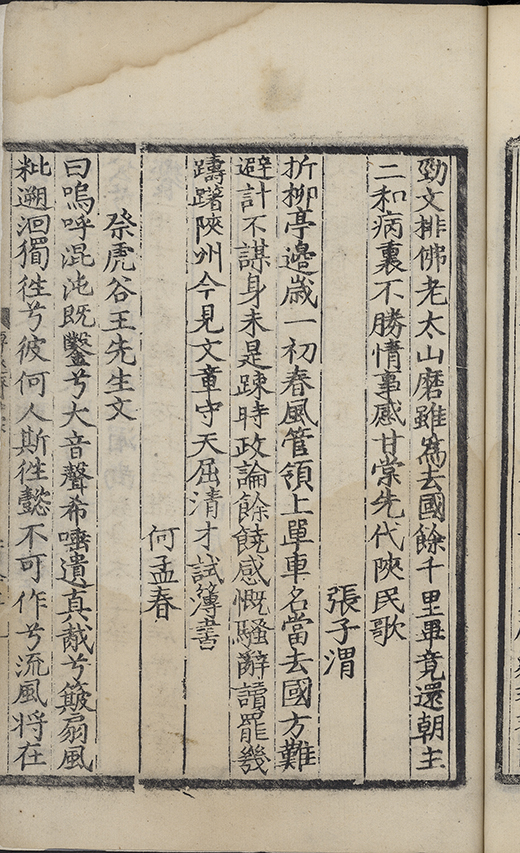 勁文排佛老太山磨雖為去國餘千里畢竟還朝主
二和病裏不勝情事感甘棠先代陝民歌
張子渭
折柳亭邊歲一初春風管領上單車名當去國方難
避計不謀身未是踈時政論餘饒感慨騷辭讀罷幾
躊躇陝州今見文章守天屈清才試簿書
何孟春
祭虎谷王先生文
曰嗚呼混沌既鑿兮大音聲希唾遺真蕺兮簸扇風
粃遡洄獨徃兮彼何人斯徃懿不可作兮流風将在